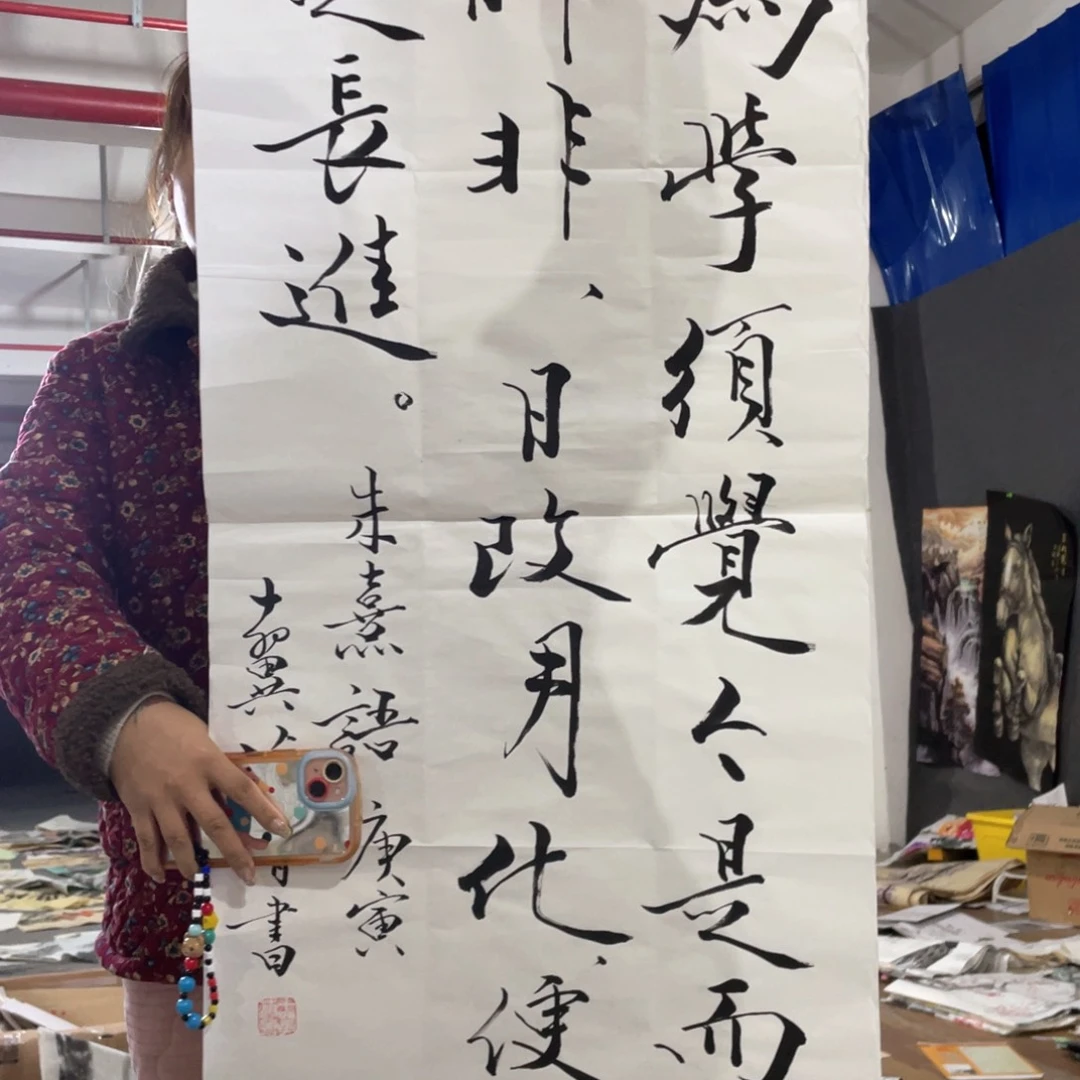 為學須覺今是而
非、日改月化、便
長進。
朱熹語 庚寅
十翼
書